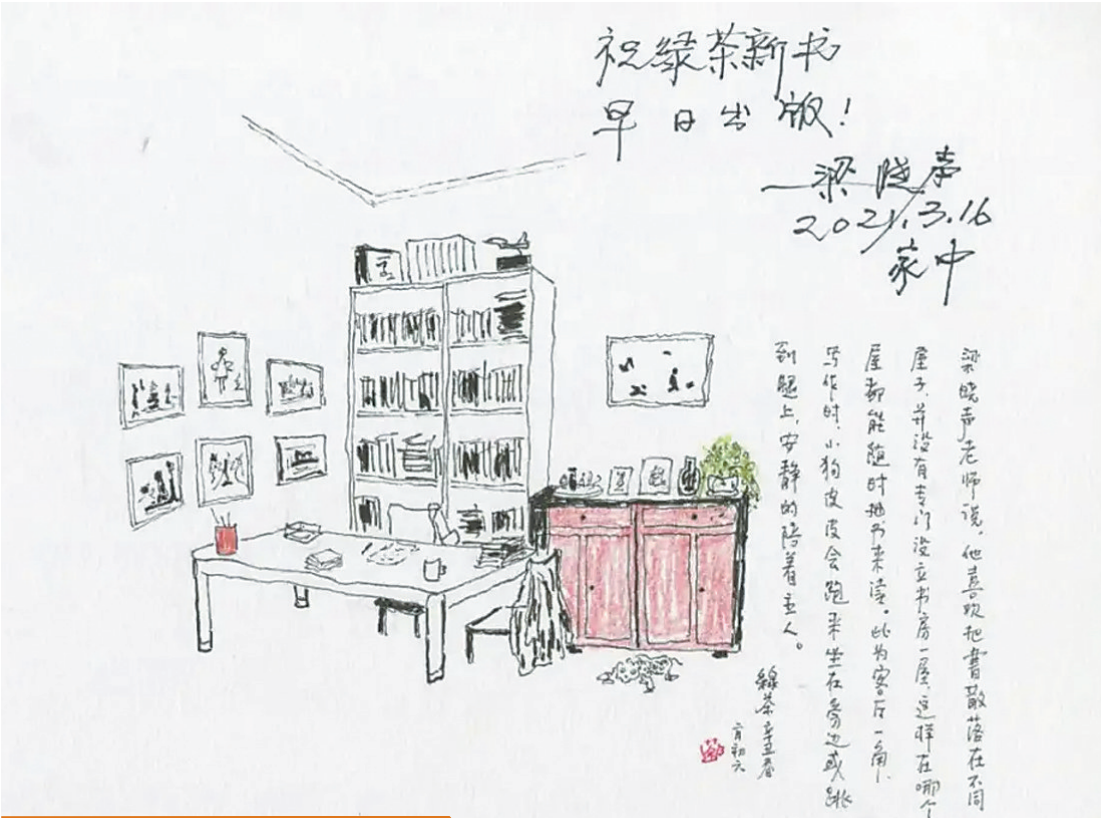 祝绿茶新书
早日出版！
——梁晓声
2021.3.16
家中
梁晓声老师说，他喜欢把書散落在不同
屋子，并没有专门设立书房一屋，这样在哪个
屋都能随时抽书来读。此为客厅一角，
写作时，小狗皮皮会跑来坐在旁边或跳
到腿上，安静的陪着主人。
綠茶辛丑春
月初六